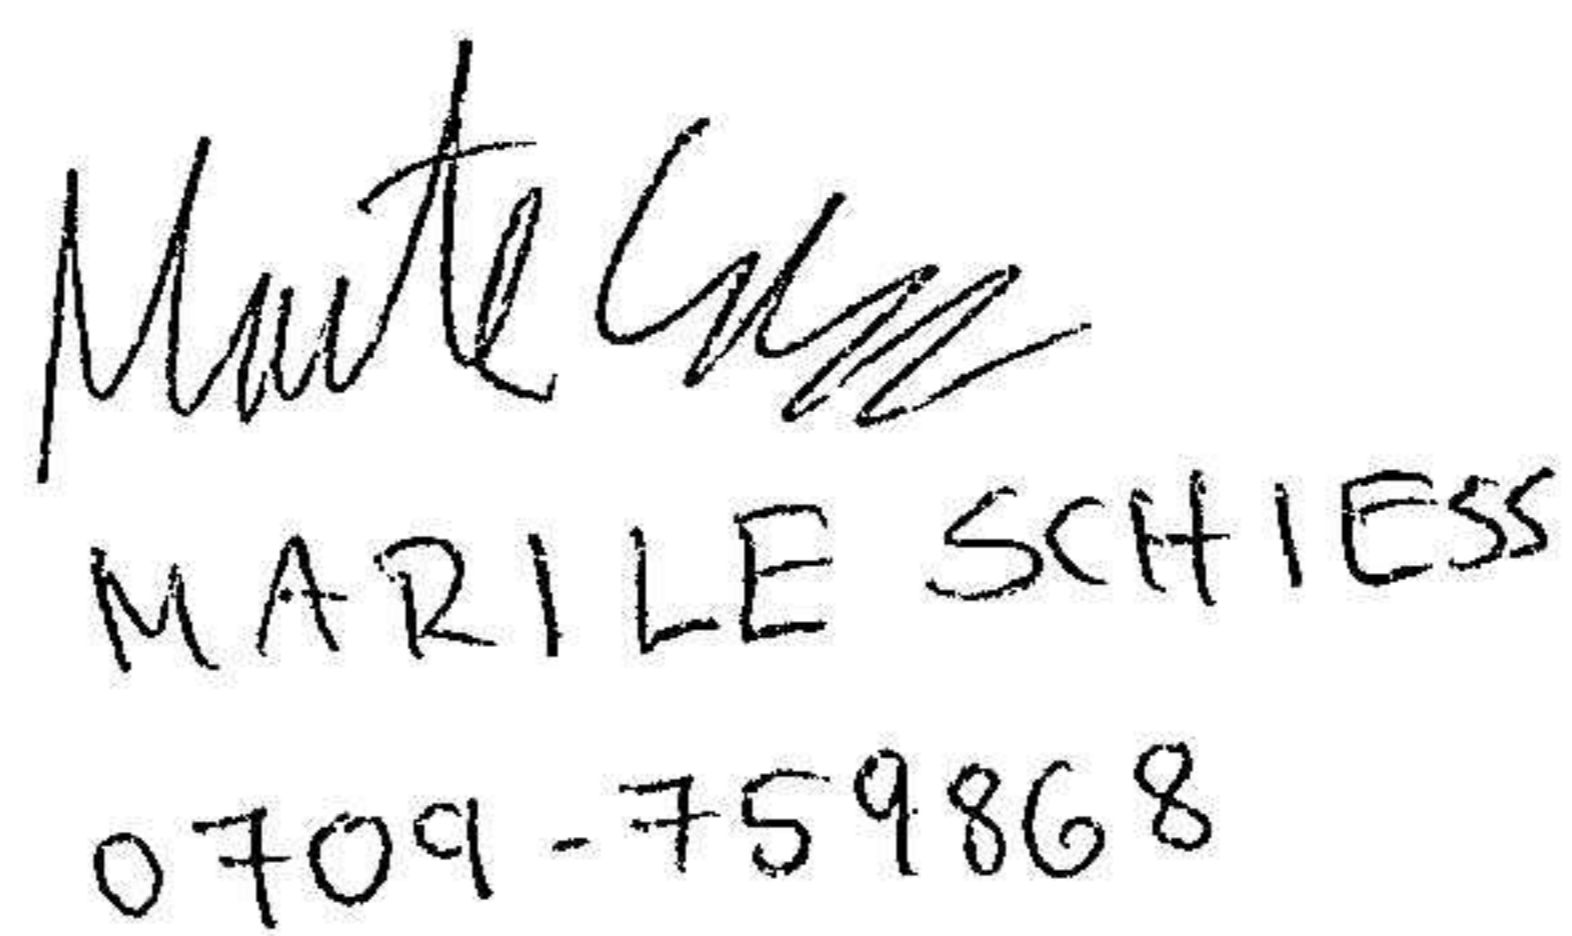 MARILE SCHIESS
0709-759868